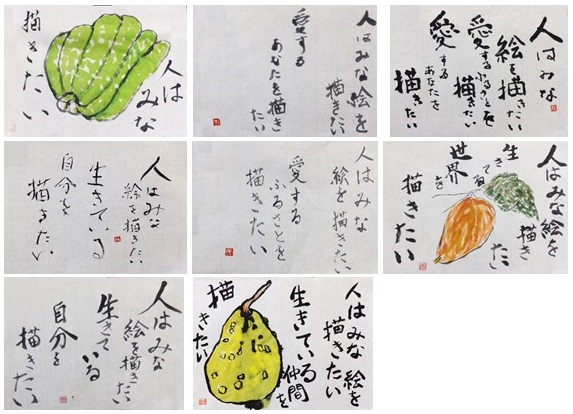 人は
みな
描きたい
人はみな絵を
描きたい
愛する
あなたを描き
たい
人はみな
絵を描きたい
愛するふるさとを
描きたい
愛する
あなたを
描きたい
人はみな
絵を描きたい
生きている
自分を
描きたい
人はみな
絵を描きたい
愛する
ふるさとを
描きたい
人はみな絵を
描き
たい
生きてる
世界を
描きたい
人はみな
絵を描きたい
生きて
いる
自分を
描きたい
人はみな絵を
描きたい
生きている
仲間を
描きたい